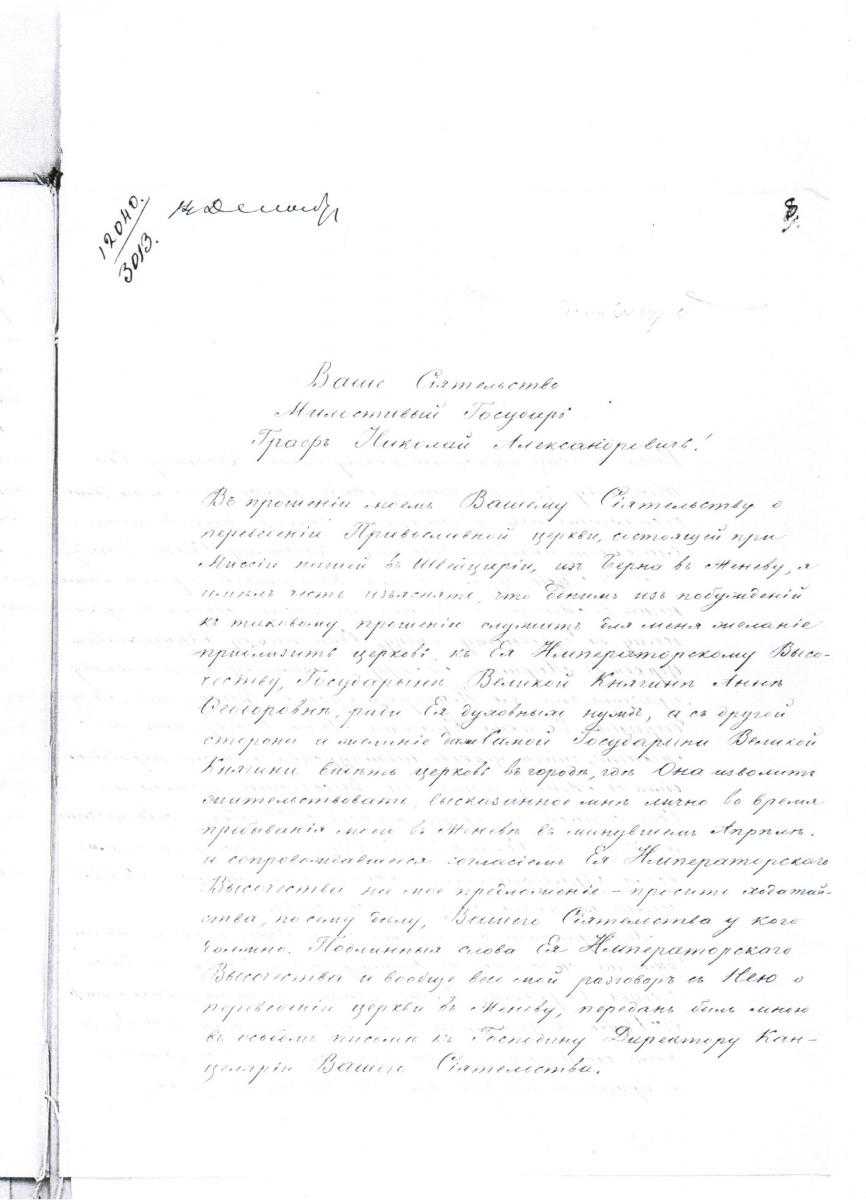 12040.
3013.
8
Ваше Сіятельство
Милостивый Государь
Графъ Николай Александровичъ!
Въ прошеніи моемъ Вашему Сіятельству о
переведеніи Православной церкви, состоящей при
Миссіи нашей въ Швейцаріи, изъ Берна въ Женеву, я
имѣлъ честь изъяснять, что однимъ изъ побужденій
къ таковому прошенію служитъ для меня желаніе
приблизить церковь къ Ея Императорскому Высо-
честву, Государынѣ Великой Княгинѣ Аннѣ
Ѳеодоровнѣ, ради Ея духовныхъ нуждъ, а съ другой
стороны и желаніе Самой Государыни Великой
Княгини имѣть церковь въ городѣ, гдѣ Она изволитъ
жительствовать, высказанное мнѣ лично во время
пребыванія моего въ Женевѣ въ минувшемъ Апрѣлѣ.
и сопровождавшееся согласіемъ Ея Императорского
Высочества на мое предложеніе – просить ходатай-
ства, по сему дѣлу, Вашего Сіятельства у кого
должно. Подлинныя слова Ея Императорскаго
Высочества и вообще весь мой разговоръ съ Нею о
переведеніи церкви въ Женеву, переданъ былъ мною
въ особомъ письмѣ къ Господину Директору Кан-
целяріи Вашего Сіятельства.